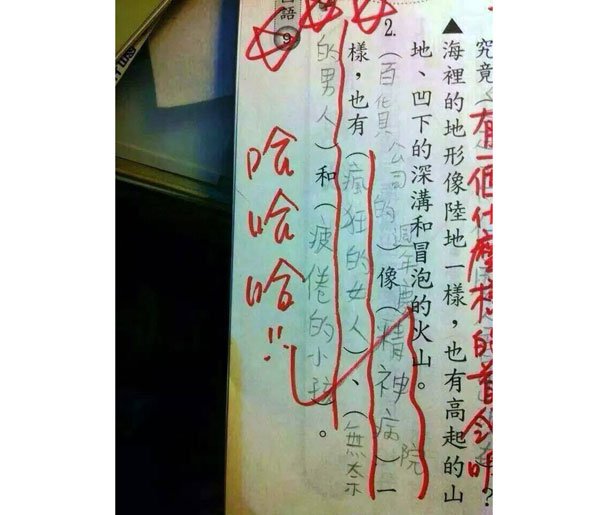 究竟（有一個什麼樣的？
▲海裡的地形像陸地一樣，也有高起的山
地、凹下的深溝和冒泡的火山。
2.（百貨公司的週年慶）像（精神病院）一
樣，也有（瘋狂的女人）、（無奈
的男人）和（疲倦的小孩）。
語9
哈哈哈!!